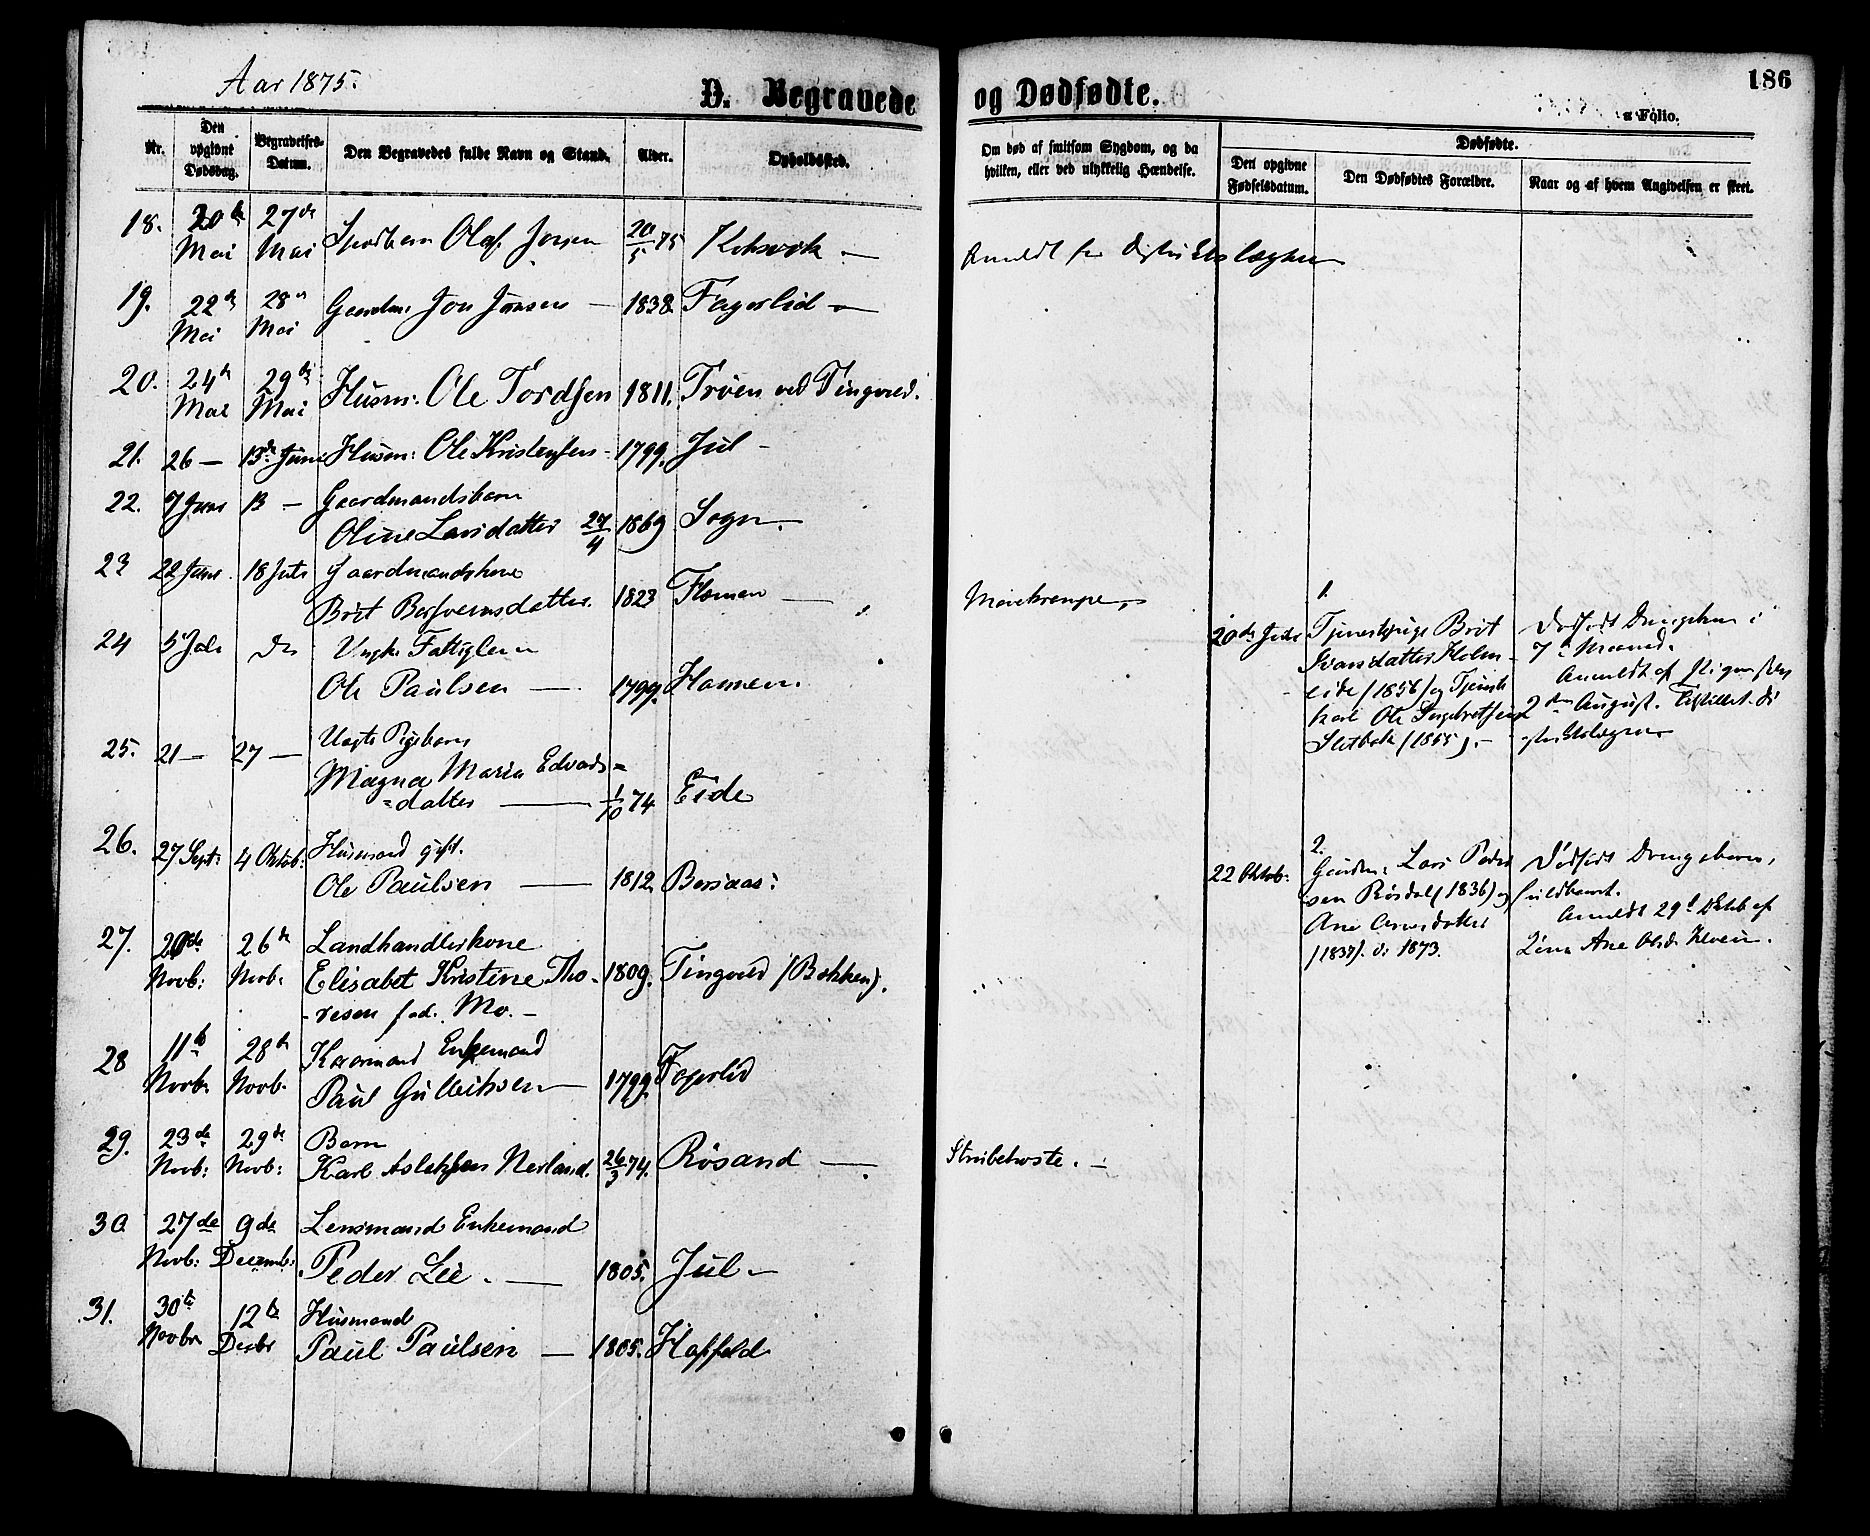 Aar 1875.
D. Begravede
og Dødfødte.
186
Folio.
Nr.
Den opgivne Dødsdag.
Begravelses-Datum.
Den Begravedes fulde Navn og Stand.
Alder.
Opholdssted.
Om død af smitsom Sygdom, og da
hvilken, eller ved ulykkelig Hændelse.
Dødfødte.
Den opgivne Fødselsdatum.
Den Dødfødtes Forældre.
Naar og af hvem Angivelsen er skeet.
18. 20de 27de
Mai Mai Olaf Jonsen 20/5 75
19. 22de 28de Gaardm: Jon Jonsen — 1838. Fagerlid —
Mai Mai
20. 24de 29de Husm: Ole Tordsen 1811. Trøen ved Tingvold.
Mai Mai
21. 26 — 13de Juni Husm: Ole Kristensen - 1799. Jul -
22. 7 Juni 13 — Gaardmandsbarn
Oline Larsdatter 27/4 1869 Sogn. —
23 22 Juni 18 Juli Gaardmandskone
Brit 1823 Flemen —
24 5 Juli Ole Paulsen — 1799. Hamnen.
25. 21 — 27 — Uægte Pigebarn
Magna Maria Edvards=
=datter — 1/10 74. Eide
26. 27 Sept: 4 Oktob: Husmand gift.
Ole Paulsen — 1812.Borsaas:
27. 20de 26de Landhandlerkone
Novb: Novb: Elisabet Kristine Tho- 1809. Tingvold (Bakken).
- resen fød. Mo. -
28 11te 28de Enkemand
Novb. Novb. Paul Gulleiksen — 1799. Fagerlid
29. 23de 29de Barn
Novb: Novb: Karl Aslaksen Nerland. 26/3 74. Røsand —
30 27de 9de Lensmand Enkemand
Novb: Decemb: Peder Lie. — 1805. Jul —
31. 30te 12te Husmand
Novbr Decbr Paul Paulsen — 1805. Hafsfeld
Anmeldt for Distriktslægen
Mavekrampe,
Strubehoste. —
1.
20de Juli Tjenestepige Brit
Ivarsdatter Holm-
eide (1856) og Tjeneste
karl Ole Ingebretsen
Sletbak (1855). -
Dødfødt Drengebarn i
7de Maaned.
Anmeldt af Pigen selv
2den August. Di
striktslægen
2.
22 Oktob: Gaardm: Lars Peder
sen Røsdal (1836) og
Ane Arnesdatter
(1837). v: 1873.
Dødfødt Drengebarn,
fuldbaaret.
Anmeldt 29de Oktob af
Ane Olsd. Kleven.